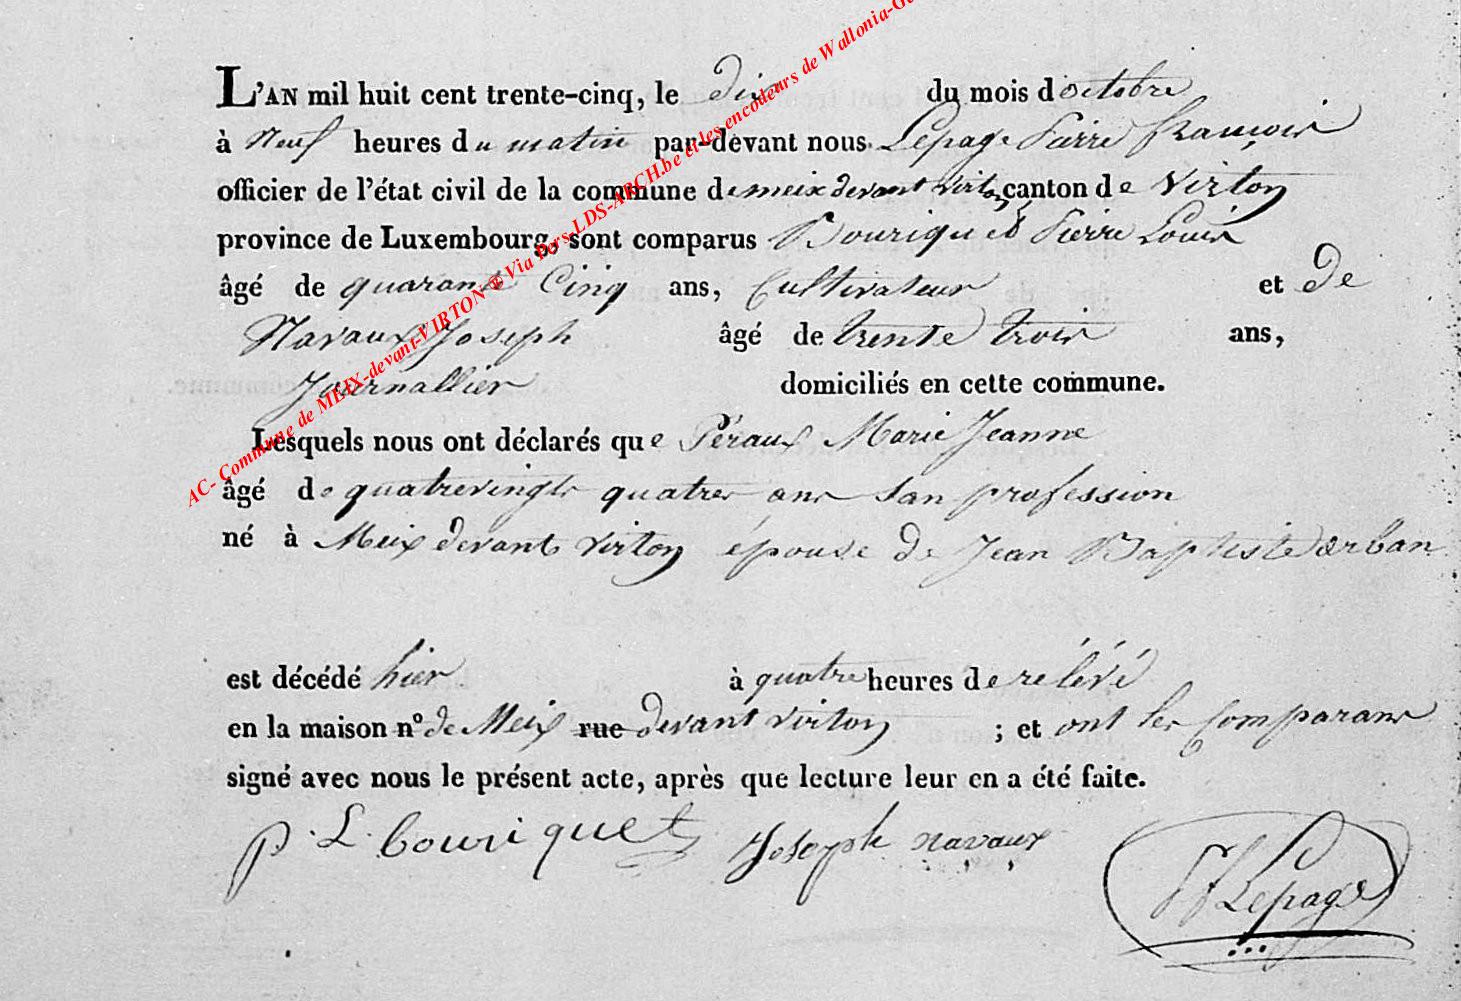 L'AN mil huit cent trente-cinq, le dix du mois d octobre
à Neuf heures du matin par-devant nous Lepage Pierre françois
officier de l'état civil de la commune de meix devant virton canton de Virton
province de Luxembourg, sont comparus Bouriquet Pierre Louis
âgé de quarante Cinq ans, Cultivateur et De
Navaux Joseph âgé de trente trois ans,
Journallier domiciliés en cette commune.
Lesquels nous ont déclarés que Péraux Marie Jeanne
âgé de quatrevingts quatres ans san profession
né à Meix devant virton épouse de Jean Baptiste
est décédé hier à quatre heures de rélévé
en la maison n° de Meix rue devant virton ; et ont les Comparans
signé avec nous le présent acte, après que lecture leur en a été faite.
p. L. bouriquet Joseph navaux
Lepage
AC- Commune de MEIX-devant-VIRTON ® Via Pers-LDS-ARCH.be et les encodeurs de Wallonia-G